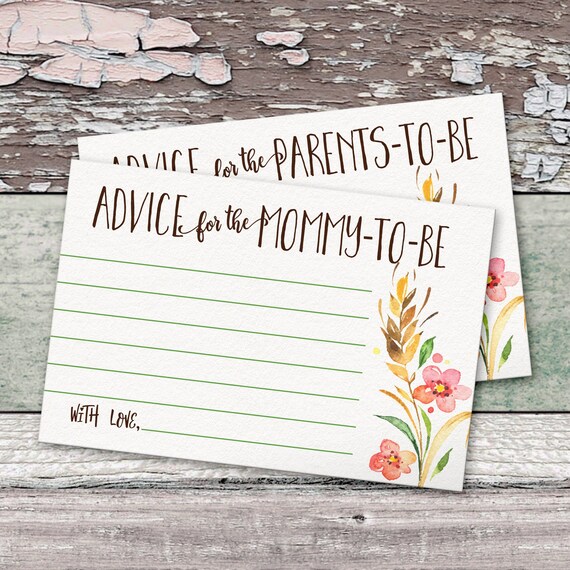 ADVICE for the PARENTS-TO-BE
ADVICE for the MOMMY-TO-BE
WITH LOVE,